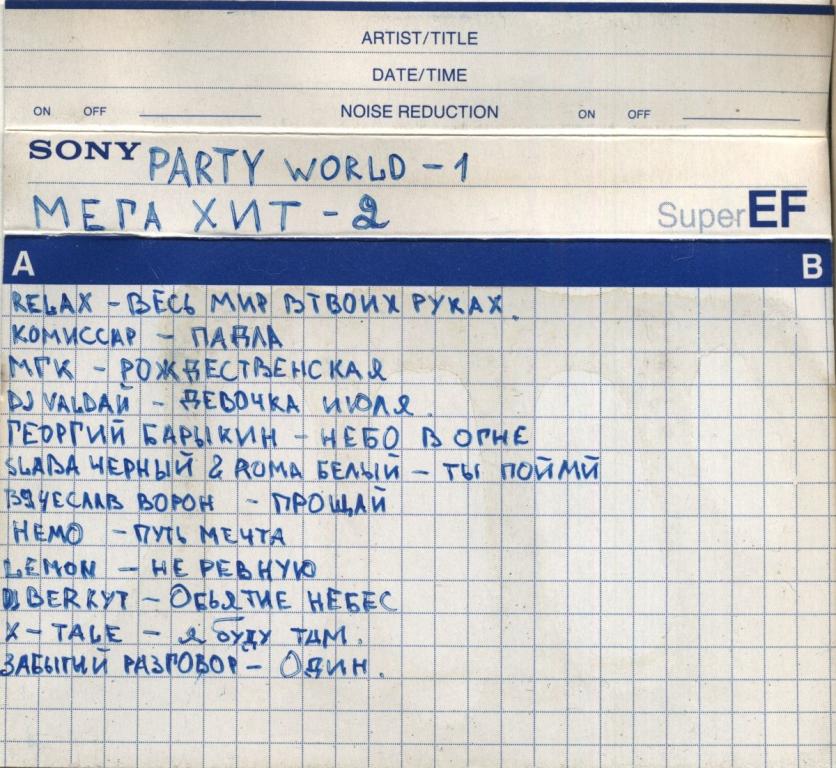 ARTIST/TITLE
DATE/TIME
ON OFF NOISE REDUCTION ON OFF
SONY PARTY WORLD - 1
МЕГА ХИТ - 2 Super EF
A B
RELAX - ВЕСЬ МИР В ТВОИХ РУКАХ.
КОМИССАР - ПАДЛА
МГК - РОЖДЕСТВЕНСКАЯ
DJ VALDAЙ - ДЕВОЧКА ИЮЛЯ.
ГЕОРГИЙ БАРЫКИН - НЕБО В ОГНЕ
SLАВА ЧЕРНЫЙ & ROMA БЕЛЫЙ - ТЫ ПОЙМЙ
ВЯЧЕСЛАВ ВОРОН - ПРОЩАЙ
НЕМО - ПУТЬ МЕЧТА
LEMON - НЕ РЕВНУЮ
DJ BERKYT - ОБЬЯТИЕ НЕБЕС
X-TALE - Я БУДУ ТАМ.
ЗАБЫТЫЙ РАЗГОВОР - ОДИН.